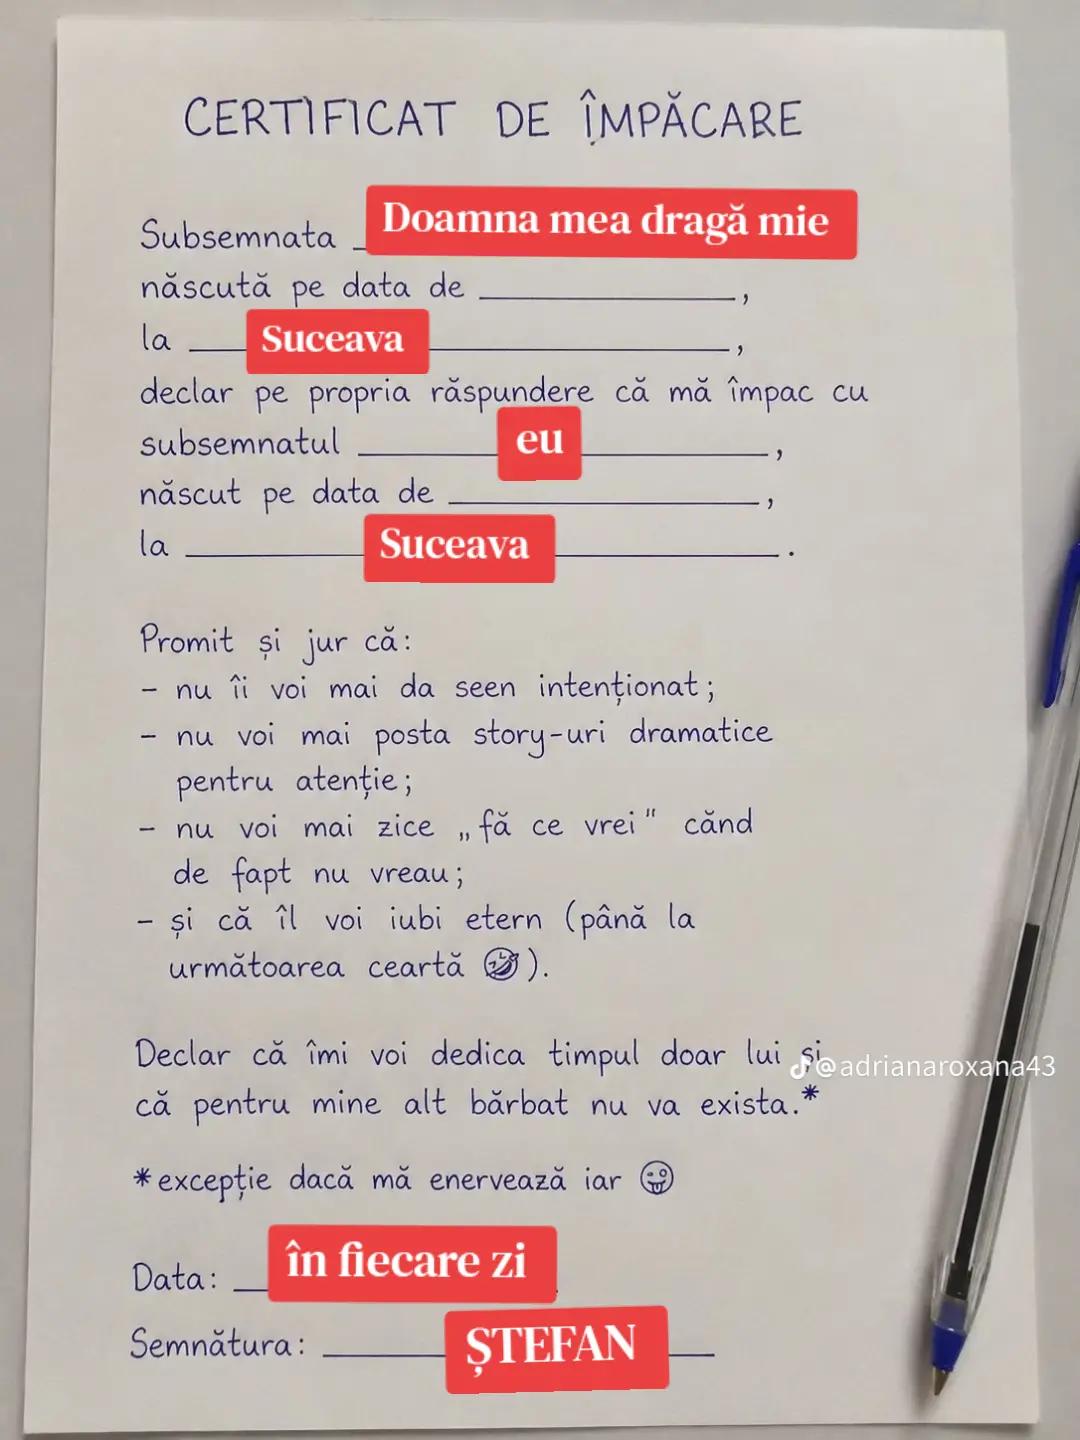 CERTIFICAT DE ÎMPĂCARE
Subsemnata _ Doamna mea dragă mie
născută pe data de ____________,
la ___ Suceava ____________,
declar pe propria răspundere că mă împac cu
subsemnatul ______ eu ________,
născut pe data de ____________,
la ________ Suceava ________.
Promit și jur că:
- nu îi voi mai da seen intenționat;
- nu voi mai posta story-uri dramatice
pentru atenție;
- nu voi mai zice „fă ce vrei" cănd
de fapt nu vreau;
- și că îl voi iubi etern (până la
următoarea ceartă 🤣).
Declar că îmi voi dedica timpul doar lui și
@adrianaroxana43
că pentru mine alt bărbat nu va exista.*
*excepție dacă mă enervează iar 🤪
Data: __ în fiecare zi
Semnătura: ______ ȘTEFAN __